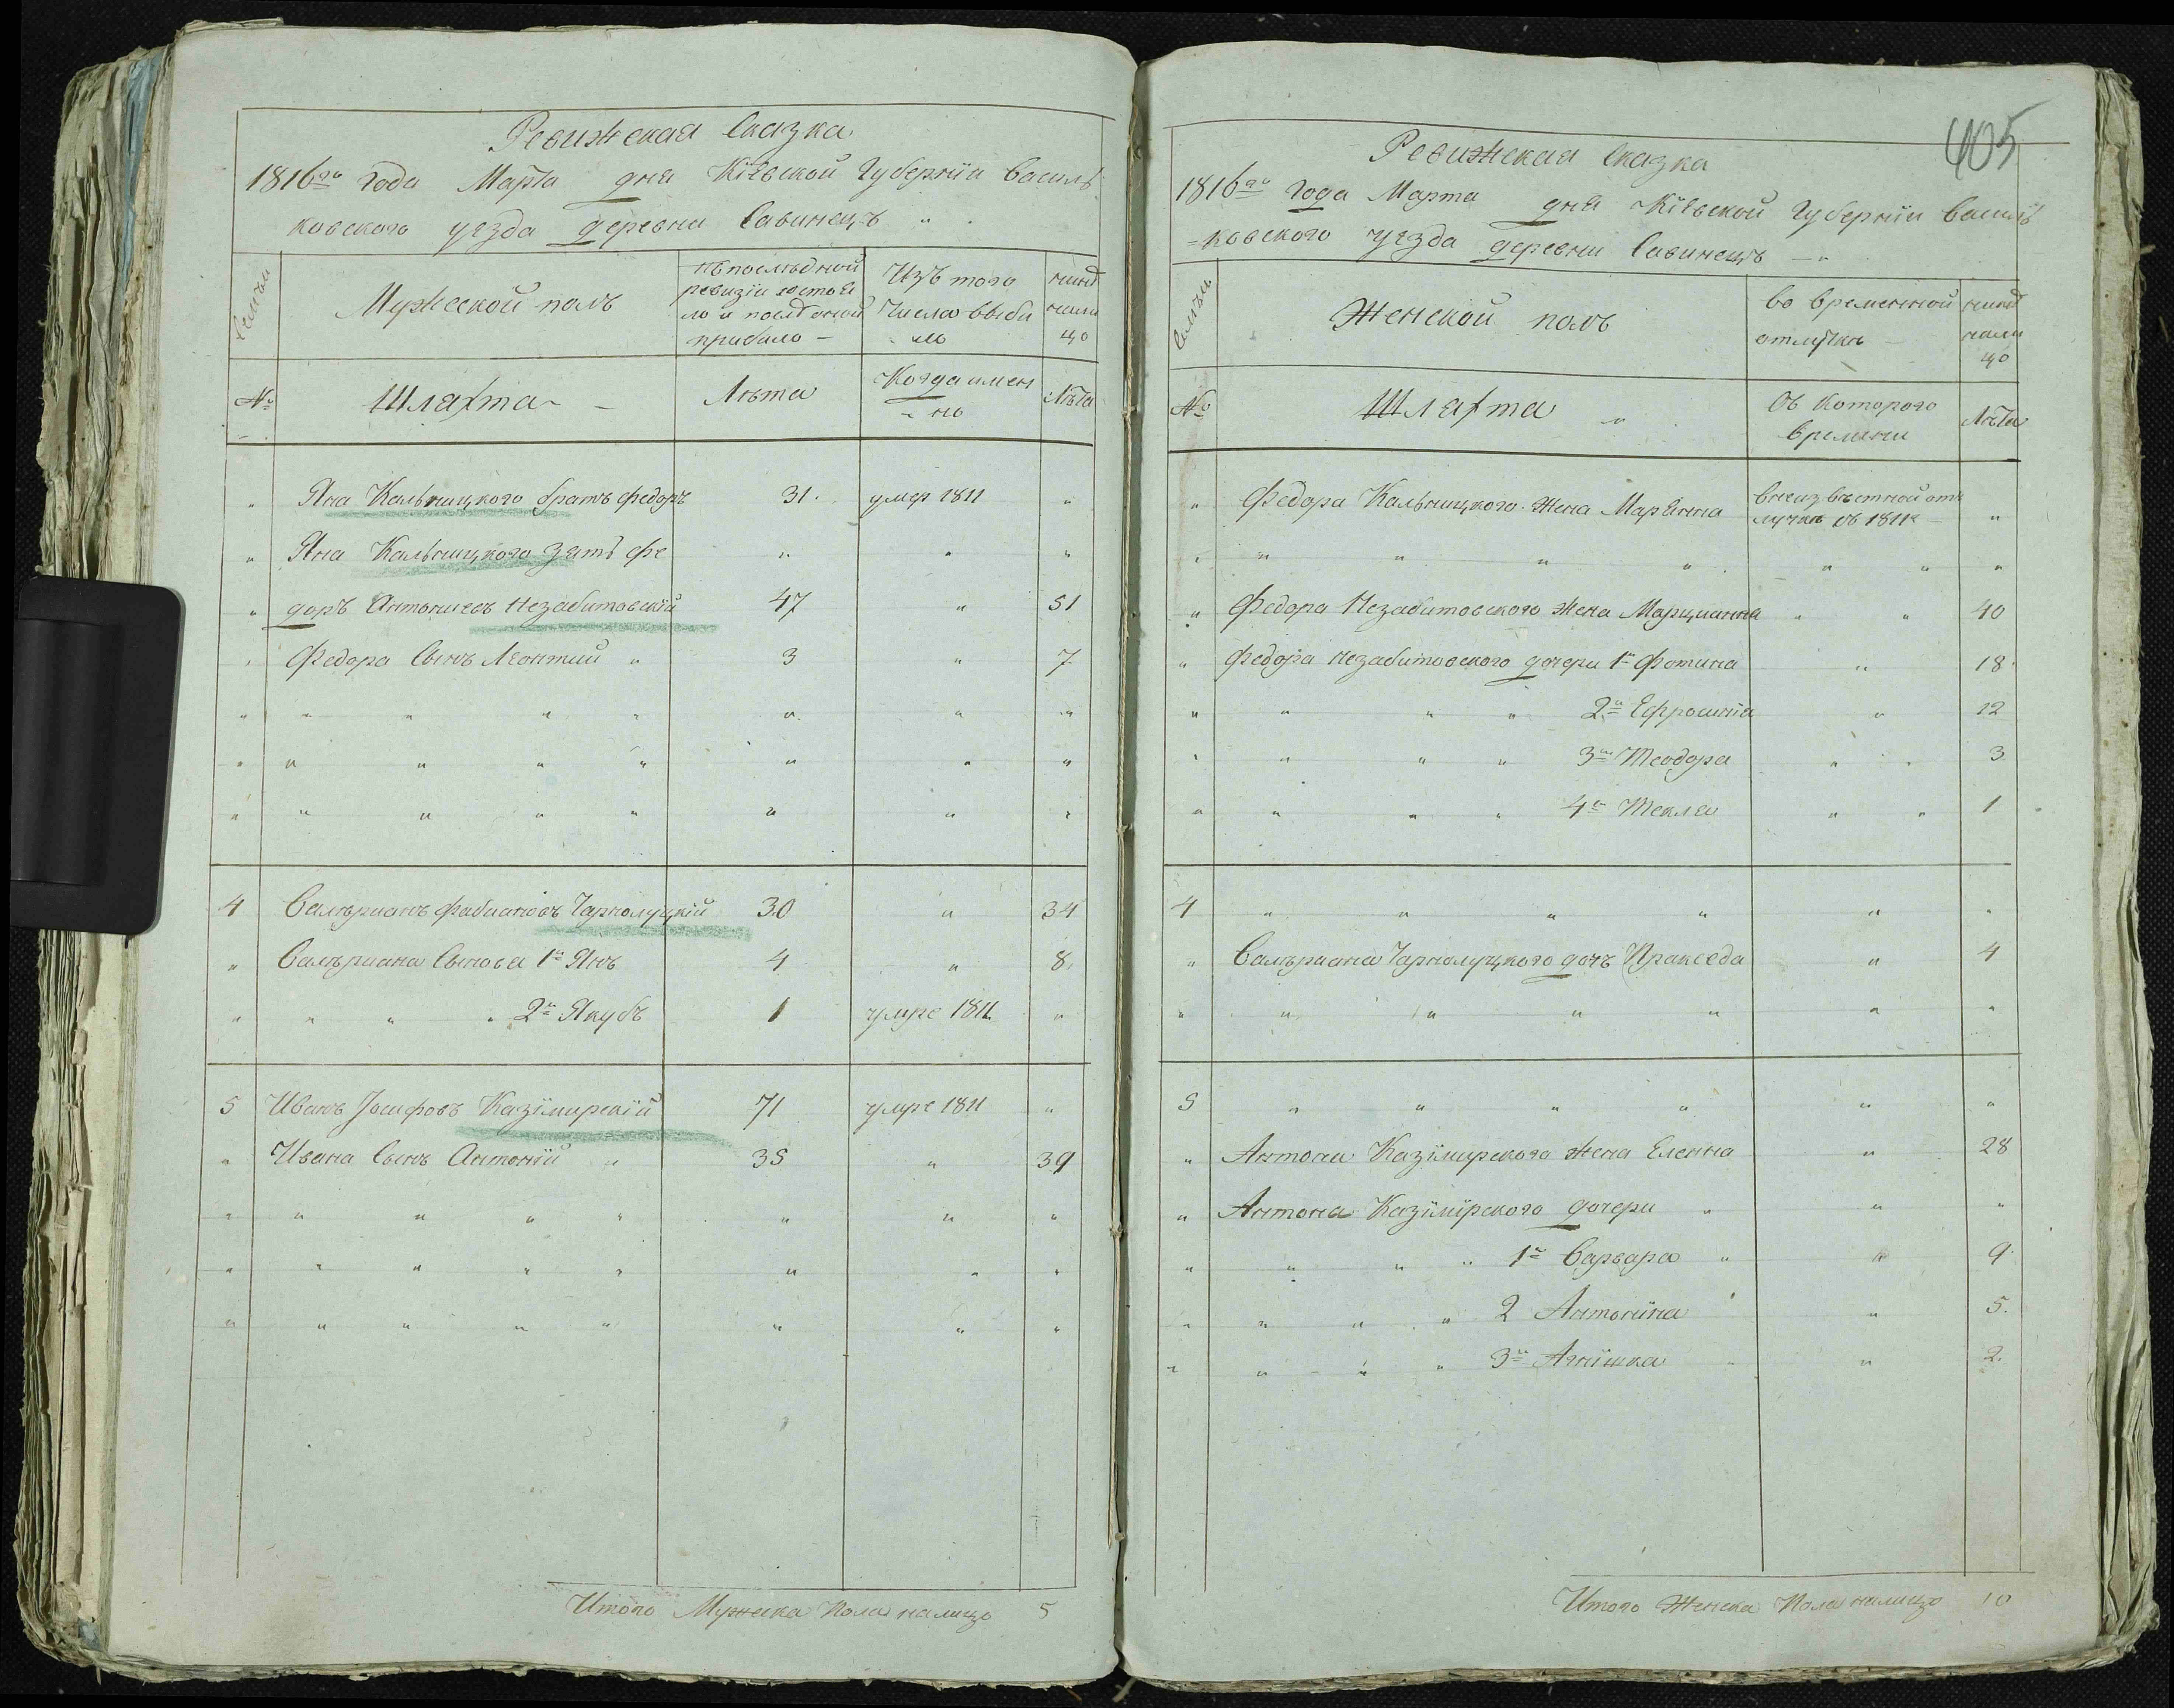 Ревижская Сказка
1816го года Марта дня Кіевской Губерніи Василь
ковского уезда деревни Савинецъ
Семьи
Мужеской полъ
въ последной
ревизіи состоя
ло и после оной
прибило -
Изъ того
Числа выби
ло
ныне
нали
цо
№
Шляхта
Лѣта
Когда имен
но
Лѣта
" Яна Кальницкого братъ Федоръ 31. умер 1811 "
" Яна Кальницкого зять Фе " " "
" доръ Антоніевъ Незабитовскій 47 " 51
" Федора Сынъ Леонтий " 3 " 7
4 Валѣрианъ Фабиановъ Чарнолуцкій 30 " 34
" Валѣриана Сыновя 1й Янъ 4 " 8
" " " " 2й Якубъ 1 умре 1811 "
5 Иванъ Іосифовъ Казімирскій 71 умре 1811 "
" Ивана Сынъ Антоній " 35 " 39
Итого Мужеска Пола налицо 5
405
Ревижская Сказка
1816го Года Марта дня Кіевской Губерніи Василь
=ковского уезда деревни Савинецъ
Семьи
Женской полъ
во временной
отлучкѣ
ныне
нали
цо
№
Шляхта
Съ Которого
времени
Лѣта
" Федора Кальницкого Жена Марянна
в неизвѣстной от
лучкѣ съ 1811г "
" Федора Незабитовского Жена Марцианна " " 40
" Федора Незабитовского дочери 1я Фотина " 18
" " " " 2я Ефросинія " 12
" " " " 3я Теодора " " 3
" " " " 4я Текля " " 1
4 " " " " " "
" Валѣриана Чарнолуцкого дочъ Пракседа " 4
5 " " " " " "
" Антони Казімирского жена Еленна " 28
" Антона Казімірского дочери " " "
" " " " 1я Варвара " " 9
" " " " 2 Антоніна " 5.
" " " " 3я Агнішка " " 2.
Итого Женска Пола налицо 10